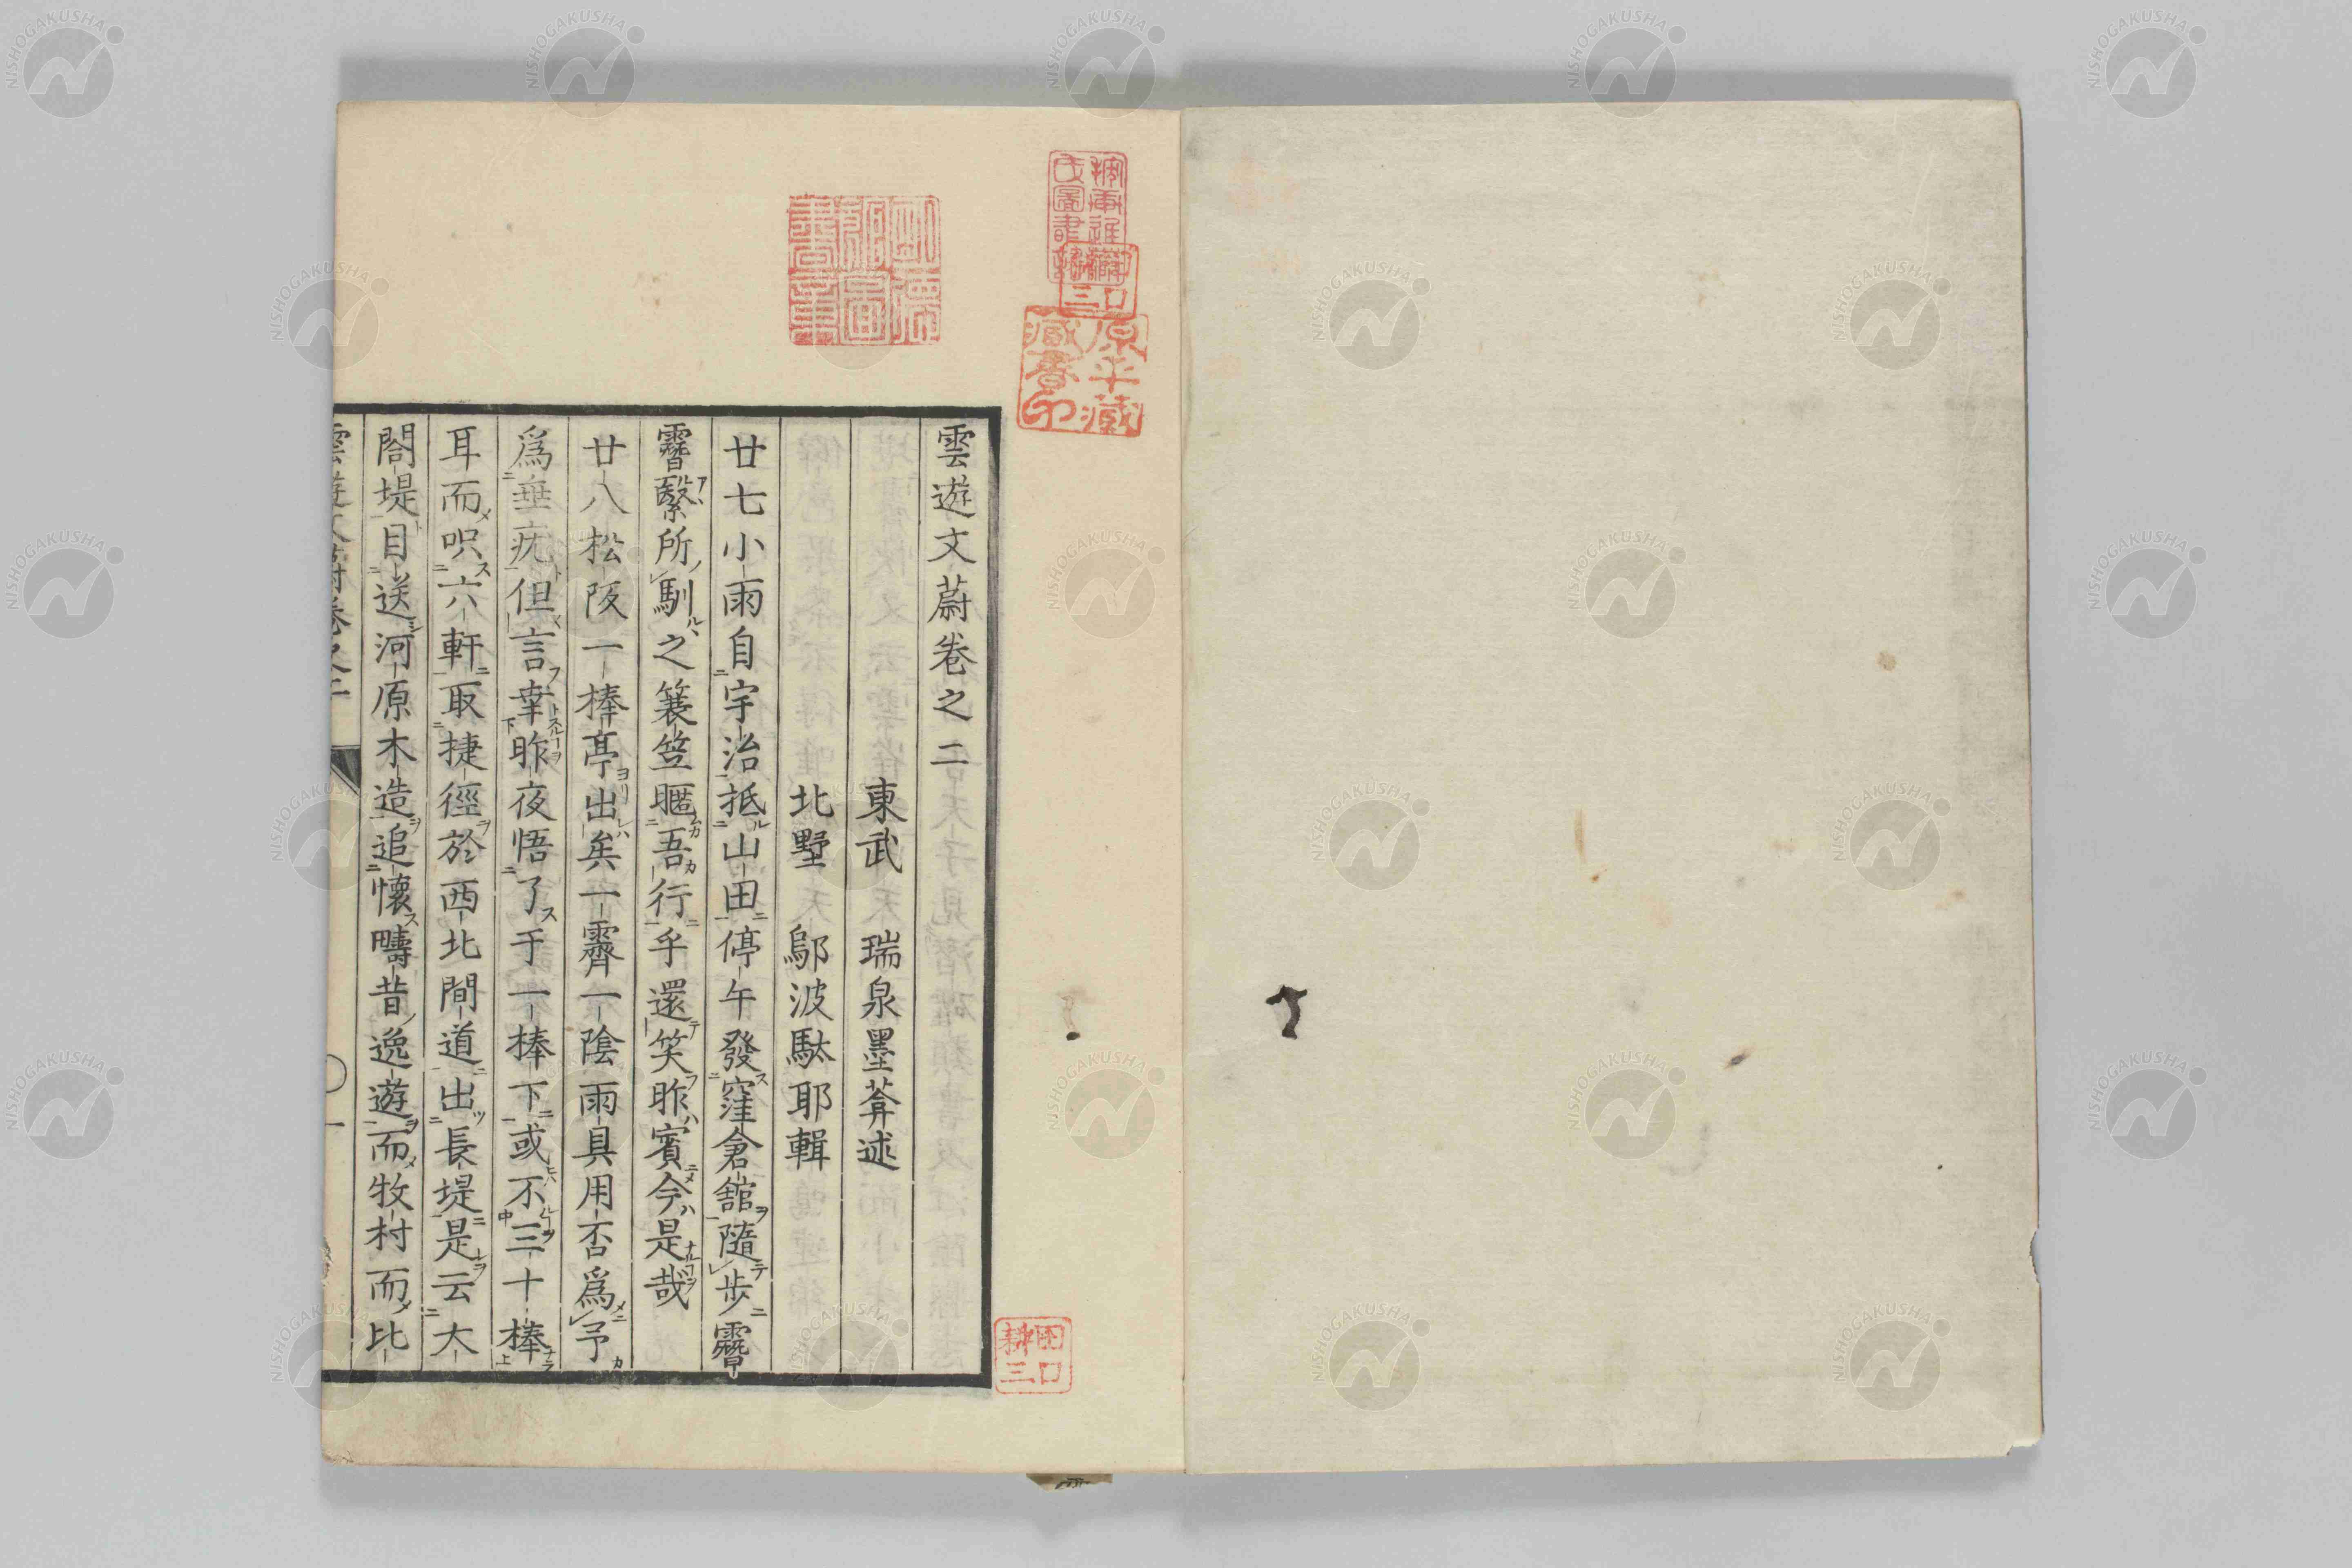 雲遊文蔚卷之二
東武　瑞泉墨葊述
北墅　鄔波馱耶輯
廿七小雨自宇治抵山田停午發窪倉舘隨步霽
霽繄所馴之簑笠暱吾行乎還笑昨賓今是哉
廿八松阪一棒亭出矣一霽一陰雨具用否爲予
爲垂疣但言幸昨夜悟了于一棒下或不三十棒
耳而呎六軒取捷徑於西北間道出長堤是云大
閤堤目送河原木造追懷疇昔逸遊而牧村而比
雲遊文蔚卷之二
一
原平藏
藏書印
田口
耕三
NISHOGAKUSHA